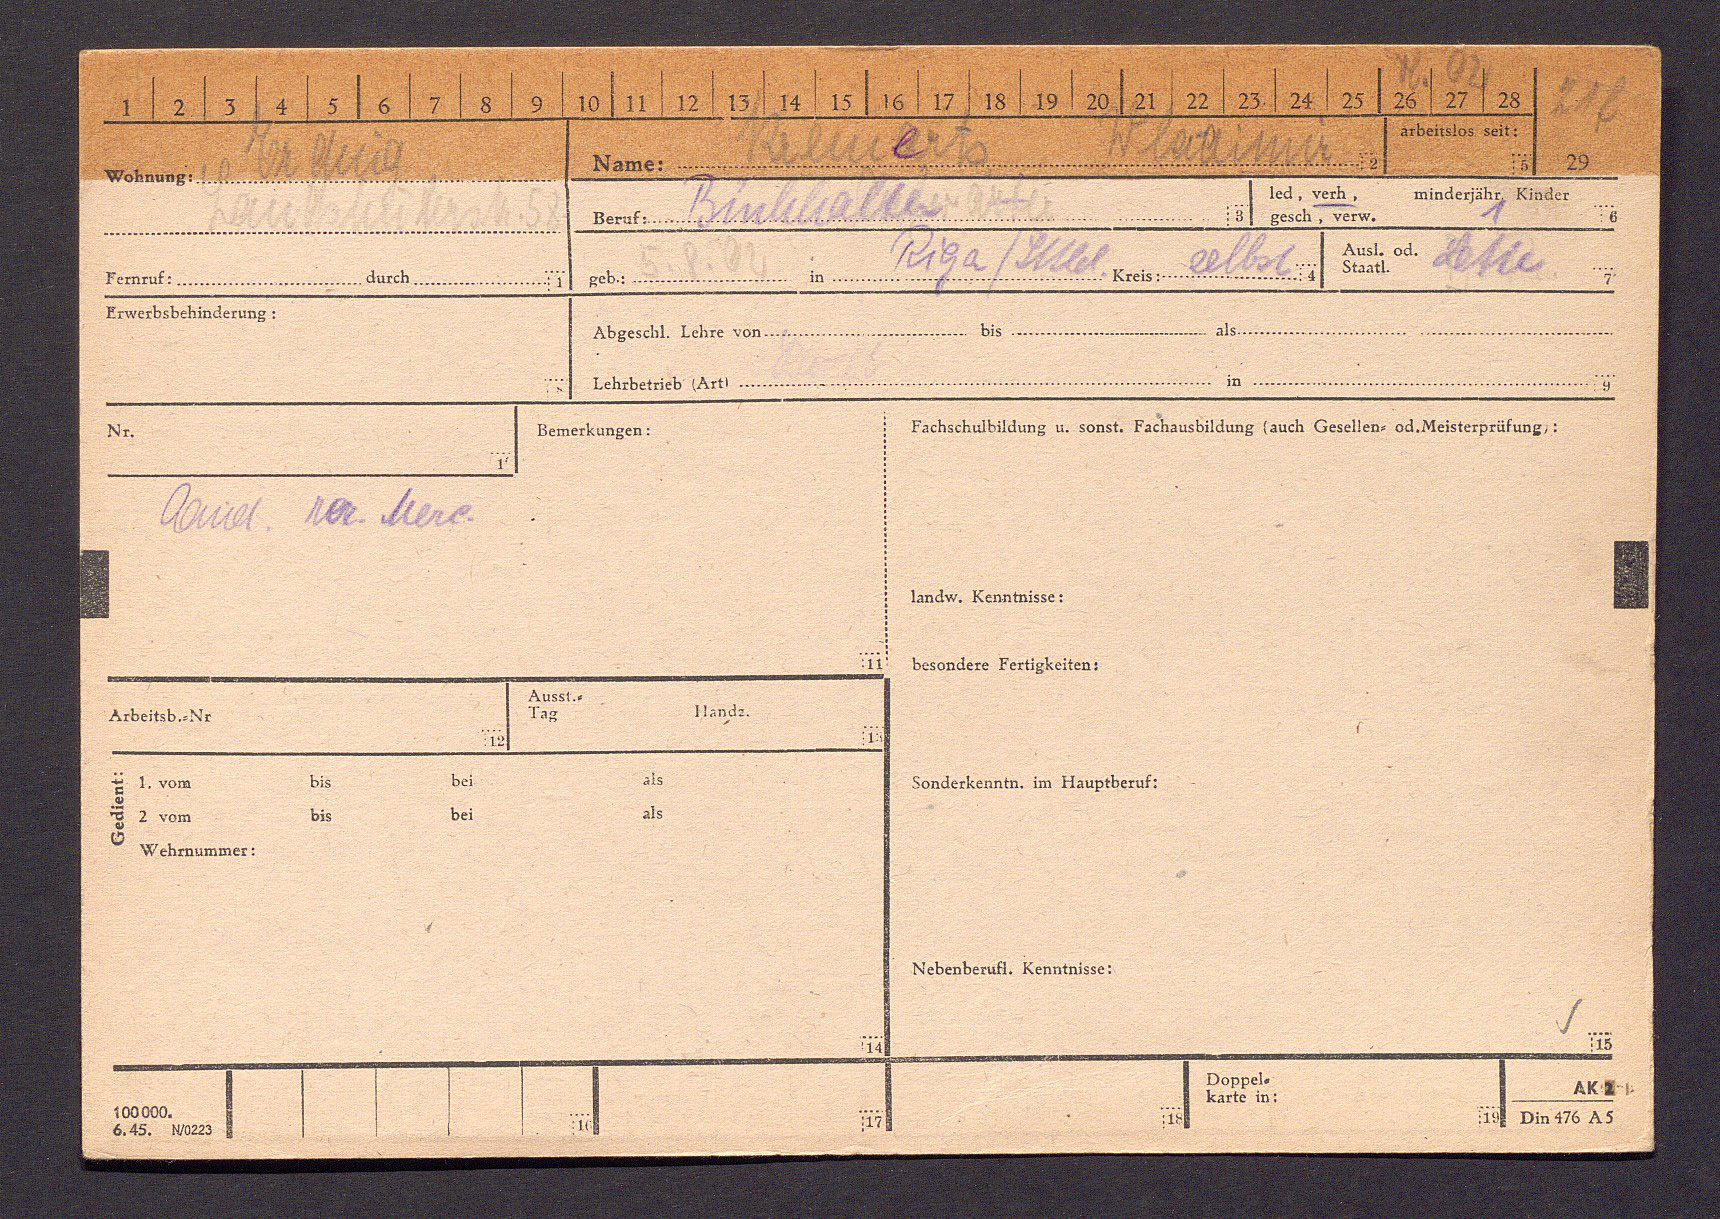 1 2 3 4 5 6 7 8 9 10 11 12 13 14 15 16 17 18 19 20 21 22 23 24 25 26 27 28
Wohnung:
58
Name: Wladimir 2
arbeitslos seit: 5
29
Beruf: Buchhalter 3
led, verh, minderjähr. Kinder
gesch, verw. 1 6
Fernruf: durch 1
geb.: 5.8.02 in Riga / Kreis: selbst 4
Ausl. od.
Staatl. Lette 7
Erwerbsbehinderung: 8
Abgeschl. Lehre von bis als
Lehrbetrieb (Art) in 9
Nr.
Bemerkungen:
Cand. rer. Merc.
11
Fachschulbildung u. sonst. Fachausbildung (auch Gesellen= od.Meisterprüfung):
landw. Kenntnisse:
besondere Fertigkeiten:
Sonderkenntn. im Hauptberuf:
Nebenberufl. Kenntnisse:
15
Arbeitsb.=Nr 12
Ausst.=
Tag Handz. 13
Gedient:
1. vom bis bei als
2 vom bis bei als
Wehrnummer:
14
100000.
6.45. N/0223
16 17 18
Doppel=
karte in: 19
AK 2
Din 476 A5